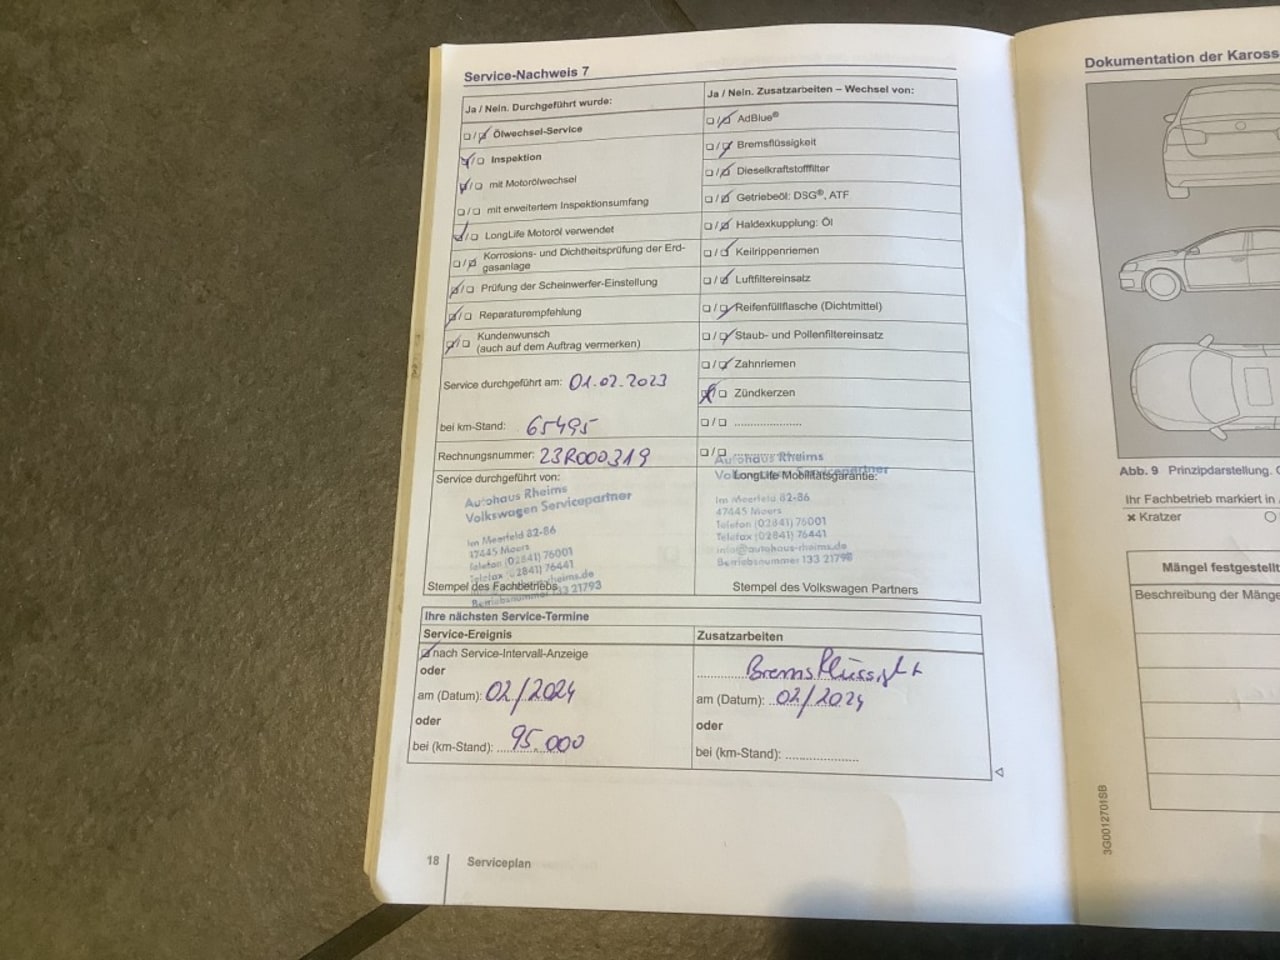 Service-Nachweis 7
Ja / Nein. Durchgeführt wurde:
Ölwechsel-Service
Inspektion
mit Motorölwechsel
mit erweitertem Inspektionsumfang
LongLife Motoröl verwendet
Korrosions- und Dichtheitsprüfung der Erd-
gasanlage
Prüfung der Scheinwerfer-Einstellung
Reparaturempfehlung
Kundenwunsch
(auch auf dem Auftrag vermerken)
Service durchgeführt am: 01.02.2023
bei km-Stand: 65495
Rechnungsnummer: 23R000319
Service durchgeführt von:
Autohaus Rheims
Volkswagen Servicepartner
Im Meerfeld 82-86
47445 Moers
Telefon (02841) 76001
Telefax (02841) 76441
Stempel des Fachbetriebs
Betriebsnummer 133 21793
Ja / Nein. Zusatzarbeiten – Wechsel von:
AdBlue®
Bremsflüssigkeit
Dieselkraftstofffilter
Getriebeöl: DSG®, ATF
Haldexkupplung: Öl
Keilrippenriemen
Luftfiltereinsatz
Reifenfüllflasche (Dichtmittel)
Staub- und Pollenfiltereinsatz
Zahnriemen
Zündkerzen
Autohaus Rheims
LongLife Mobilitätsgarantie:
Im Meerfeld 82-86
47445 Moers
Telefon (02841) 76001
Telefax (02841) 76441
info@autohaus-rheims.de
Betriebsnummer 133 21793
Stempel des Volkswagen Partners
Ihre nächsten Service-Termine
Service-Ereignis
nach Service-Intervall-Anzeige
oder
am (Datum): 02/2024
oder
bei (km-Stand): 95.000
Zusatzarbeiten
Bremsflüssigkt
am (Datum): 02/2024
oder
bei (km-Stand):
18
Serviceplan
Dokumentation der Kaross
Abb. 9 Prinzipdarstellung.
Ihr Fachbetrieb markiert in
× Kratzer
Mängel festgestellt
Beschreibung der Mänge
3G0012701SB